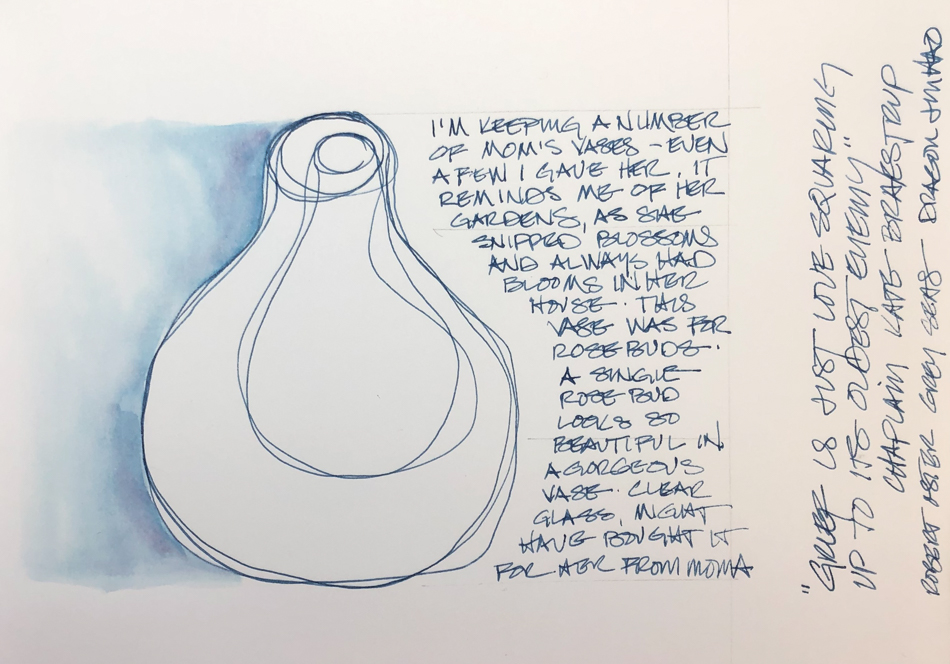 I'M KEEPING A NUMBER
OF MOM'S VASES - EVEN
A FEW I GAVE HER. IT
REMINDS ME OF HER
GARDENS, AS SHE
SNIPPED BLOSSOMS
AND ALWAYS HAD
BLOOMS IN HER
HOUSE. THIS
VASE WAS FOR
ROSE BUDS.
A SINGLE
ROSE BUD
LOOKS SO
BEAUTIFUL IN
A GORGEOUS
VASE. CLEAR
GLASS, MIGHT
HAVE BOUGHT IT
FOR HER FROM MOMA
"GRIEF IS JUST LOVE SQUARING
UP TO ITS OLDEST ENEMY"
CHAPLAIN KATE BRAESTRUP
ROBERT OSTER GREY SEAS - DRAGON